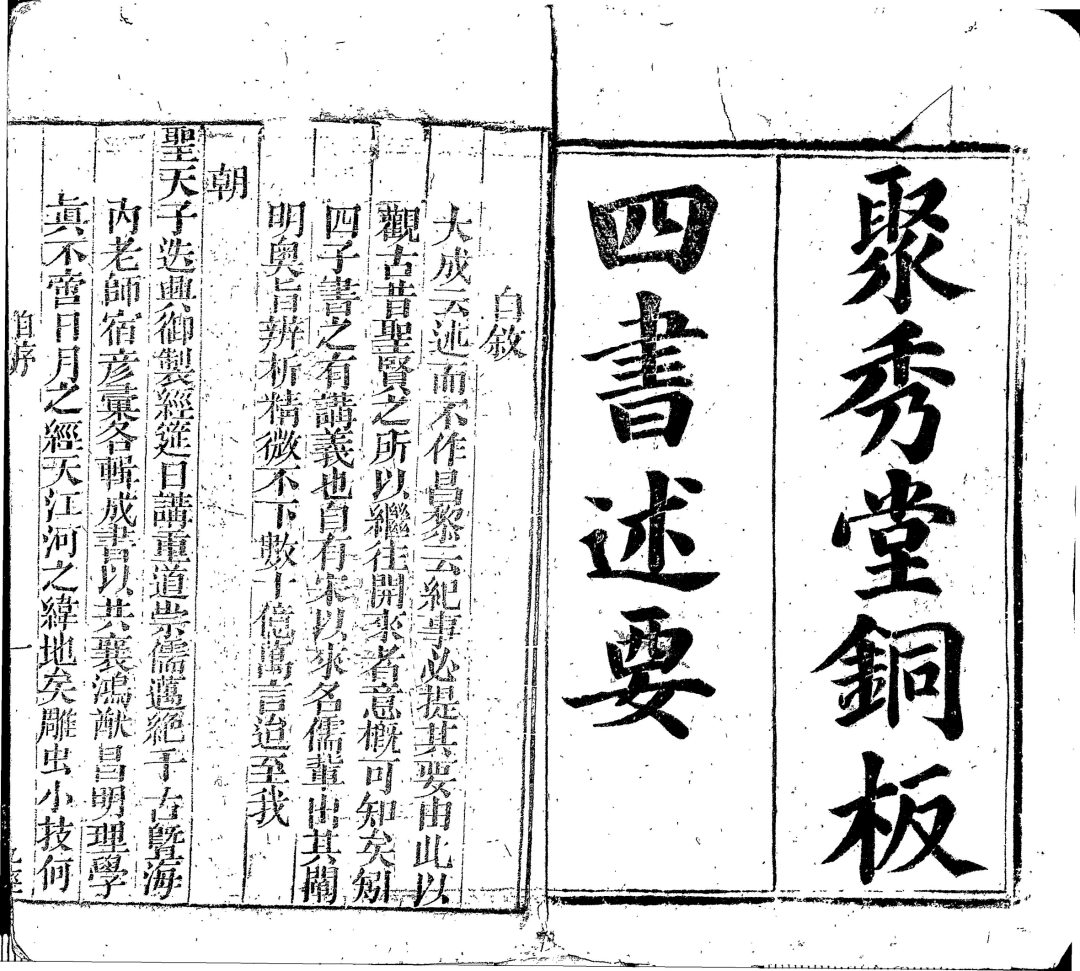 聚秀堂銅板
四書述要
自敘
大成云述而不作昌黎云紀事必提其要由此以
觀古昔聖賢之所以繼往開來者意概可知矣矧
四子書之有講義也自有宋以來名儒輩出其闡
明奧旨辨析精微不下數十億萬言迨至我
朝
聖天子迭興御製經筵日講重道崇儒邁絕千古暨海
內老師宿彥彙各輯成書以共襄鴻猷昌明理學
眞不啻日月之經天江河之緯地矣雕虫小技何
自序
一